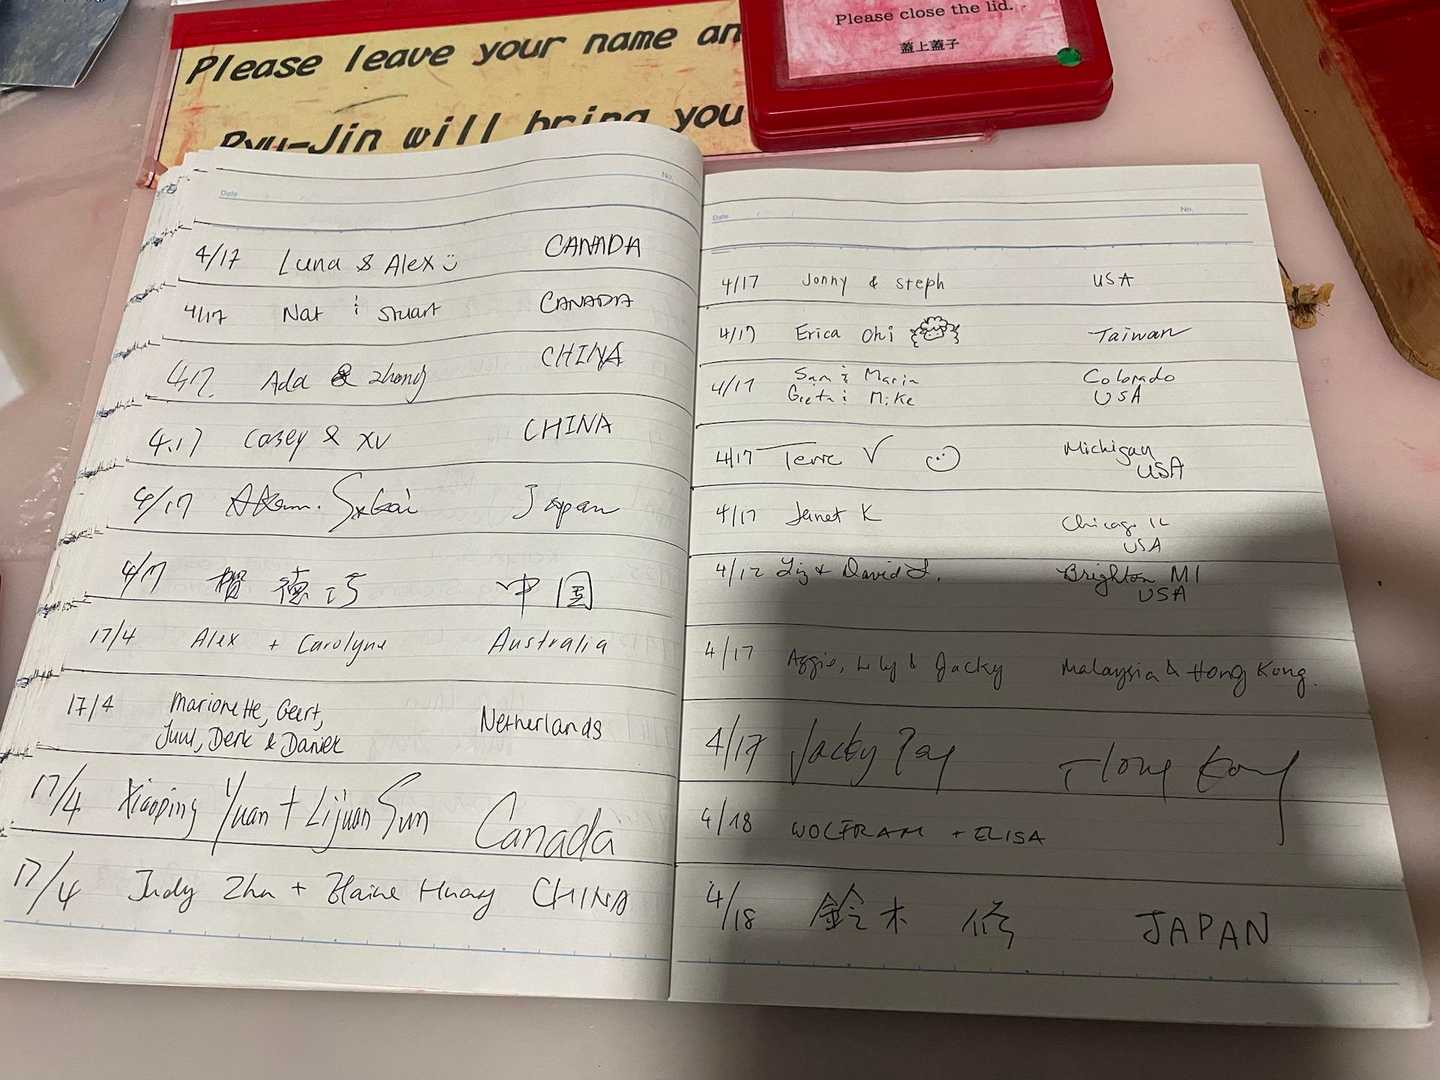 Please leave your name an
Ryu-Jin will bring you
Please close the lid.
蓋上蓋子
Date No.
4/17 Luna & Alex CANADA
4/17 Nat & Stuart CANADA
4.17. Ada & Zhong CHINA
4.17 Casey & XV CHINA
4/17 Japan
4/17 德巧 中国
17/4 Alex + Carolyne Australia
17/4 Marionette, Geert, Netherlands
Juul, Derk & Daniek
17/4 Xiaoping Yuan + Lijuan Sun Canada
17/4 Judy Zhu + Elaine Huang CHINA
Date No.
4/17 Jonny & Steph USA
4/17 Erica Ohi Taiwan
4/17 Sam & Maria Colorado
Greta & Mike USA
4/17 V Michigan
USA
4/17 Janet K Chicago IL
USA
4/17 Liz + David L. Brighton MI
USA
4/17 Aggie, Lily & Jacky Malaysia & Hong Kong.
4/17 Jacky Hong Kong
4/18 WOLFRAM + ELISA
4/18 鈴木 修 JAPAN